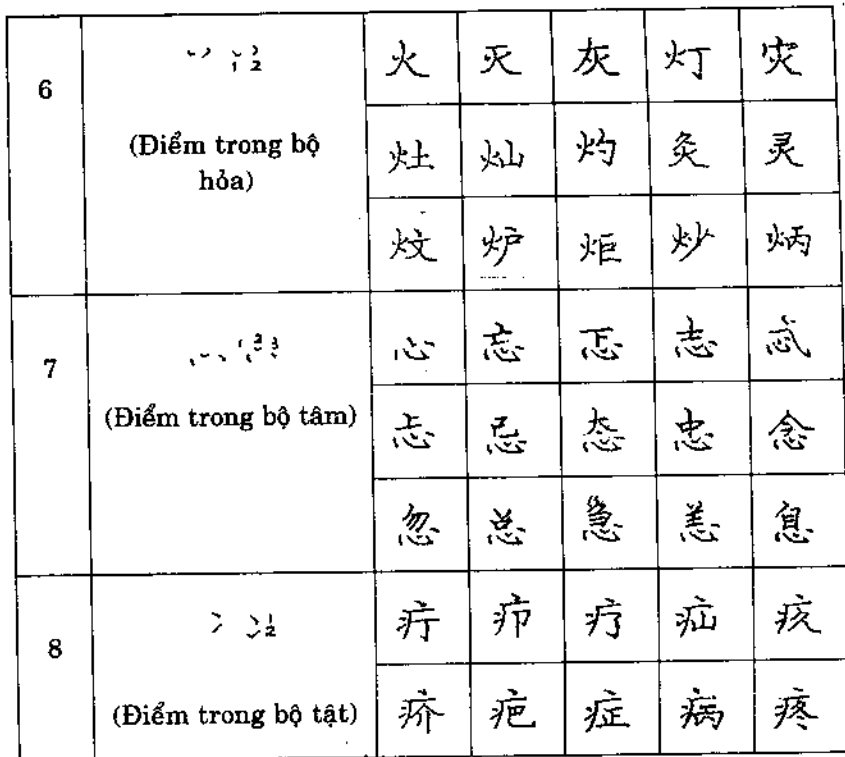 6
(Điểm trong bộ
hỏa)
火 灭 灰 灯 灾
灶 灿 灼 灸 灵
炆 炉 炬 炒 炳
7
(Điểm trong bộ tâm)
心 忘 忑 志 忒
忐 忌 态 忠 念
忽 总 急 恙 息
8
(Điểm trong bộ tật)
疔 疖 疗 疝 疚
疥 疤 症 病 疼